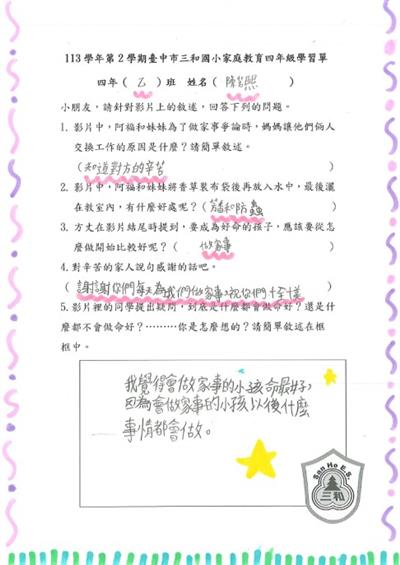 113學年第2學期臺中市三和國小家庭教育四年級學習單
四年（乙）班 姓名（陳 熙）
小朋友，請針對影片上的敘述，回答下列的問題。
1. 影片中，阿福和妹妹為了做家事爭論時，媽媽讓他們倆人
交換工作的原因是什麼？請簡單敘述。
（知道對方的辛苦）
2. 影片中，阿福和妹妹將香草裝布袋後再放入水中，最後灑
在教室內，有什麼好處呢？（ 和防蟲）
3. 方丈在影片結尾時提到，要成為好命的孩子，應該要從怎
麼做開始比較好呢？（做家事）
4. 對辛苦的家人說句感謝的話吧。
（謝謝你們每天為我們做家事,祝你們 ）
5. 影片裡的同學提出疑問，到底是什麼都會做好命？還是什
麼都不會做命好？………你是怎麼想的？請簡單敘述在框
框中。
我覺得會做家事的小孩命最好,
因為會做家事的小孩以後什麼
事情都會做。
San Ho E.S.
三和